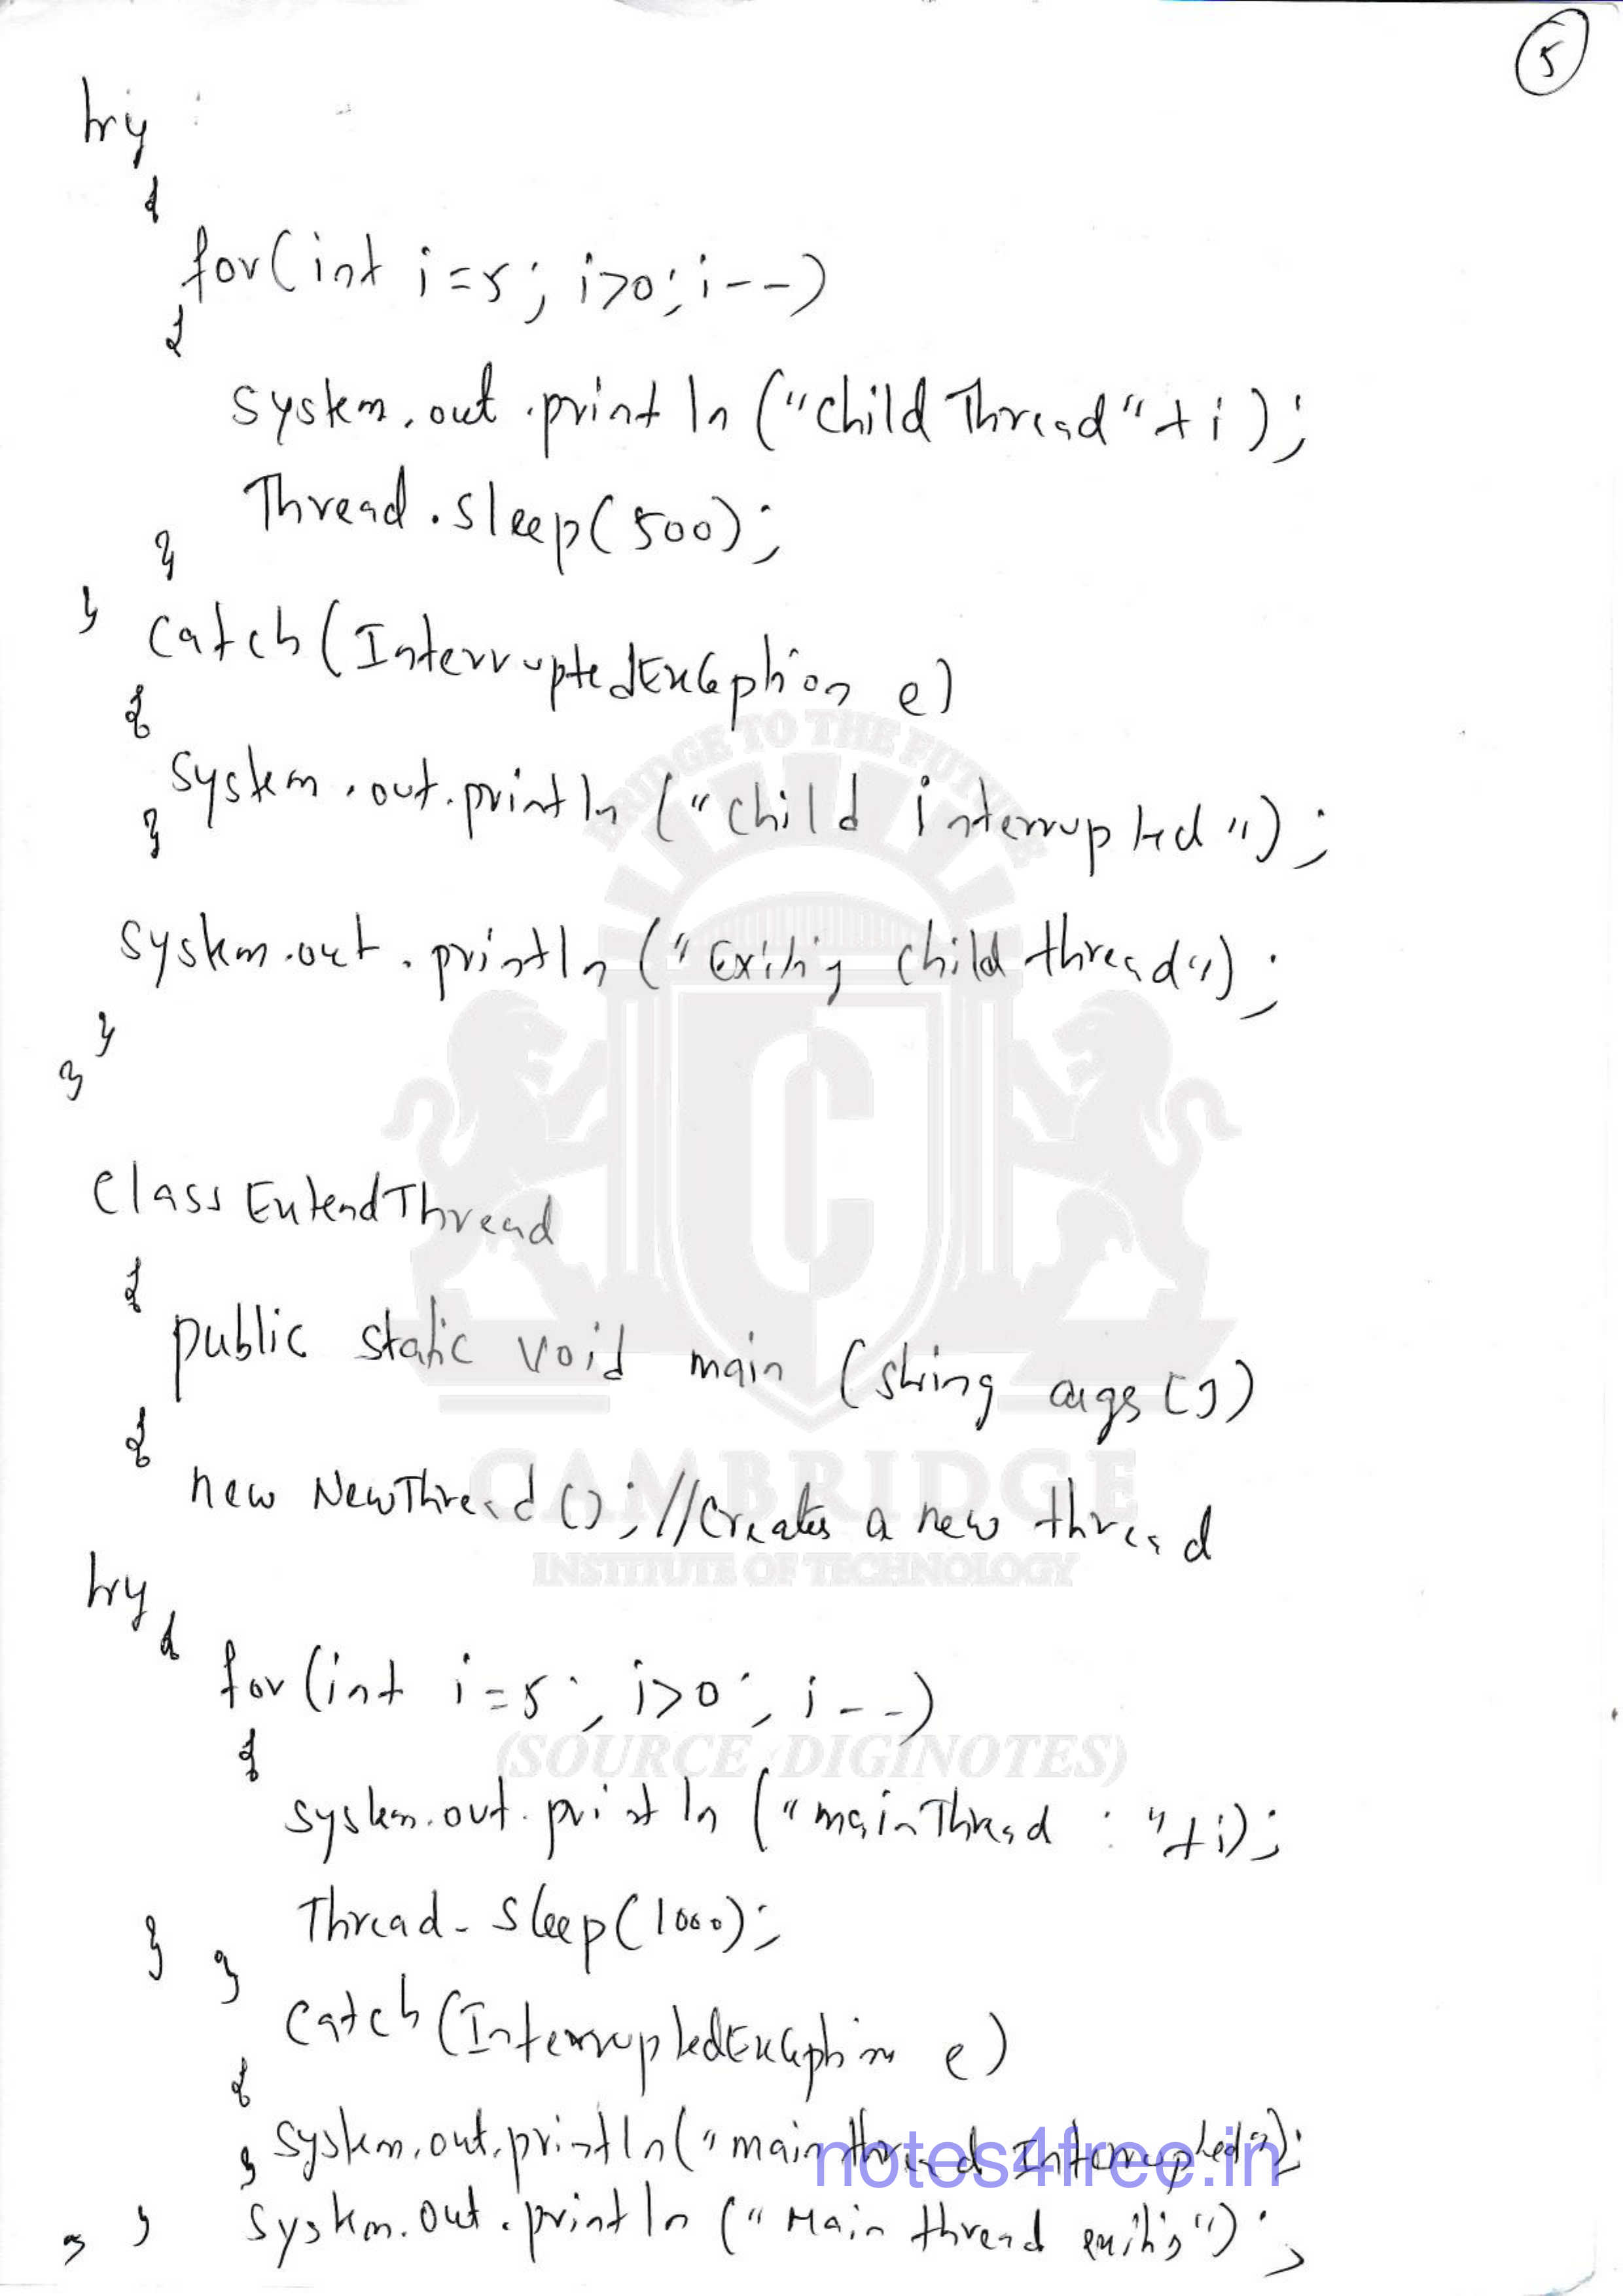 5
try
{
for(int i=5; i>0; i--)
{
System.out.println("child Thread"+i);
Thread.sleep(500);
}
} catch(InterruptedException e)
{
System.out.println("child interrupted");
}
System.out.println("Exiting child thread");
}
}
class ExtendThread
{
public static void main (string args[])
{
new NewThread(); //Creates a new thread
try {
for(int i=5; i>0; i--)
{
System.out.println("mainThread : "+i);
Thread.sleep(1000);
} }
catch(InterruptedException e)
{
System.out.println("main thread Interrupted");
}
} } System.out.println("Main thread exiting");
BRIDGE TO THE FUTURE
C
CAMBRIDGE
INSTITUTE OF TECHNOLOGY
(SOURCE DIGINOTES)
notes4free.in